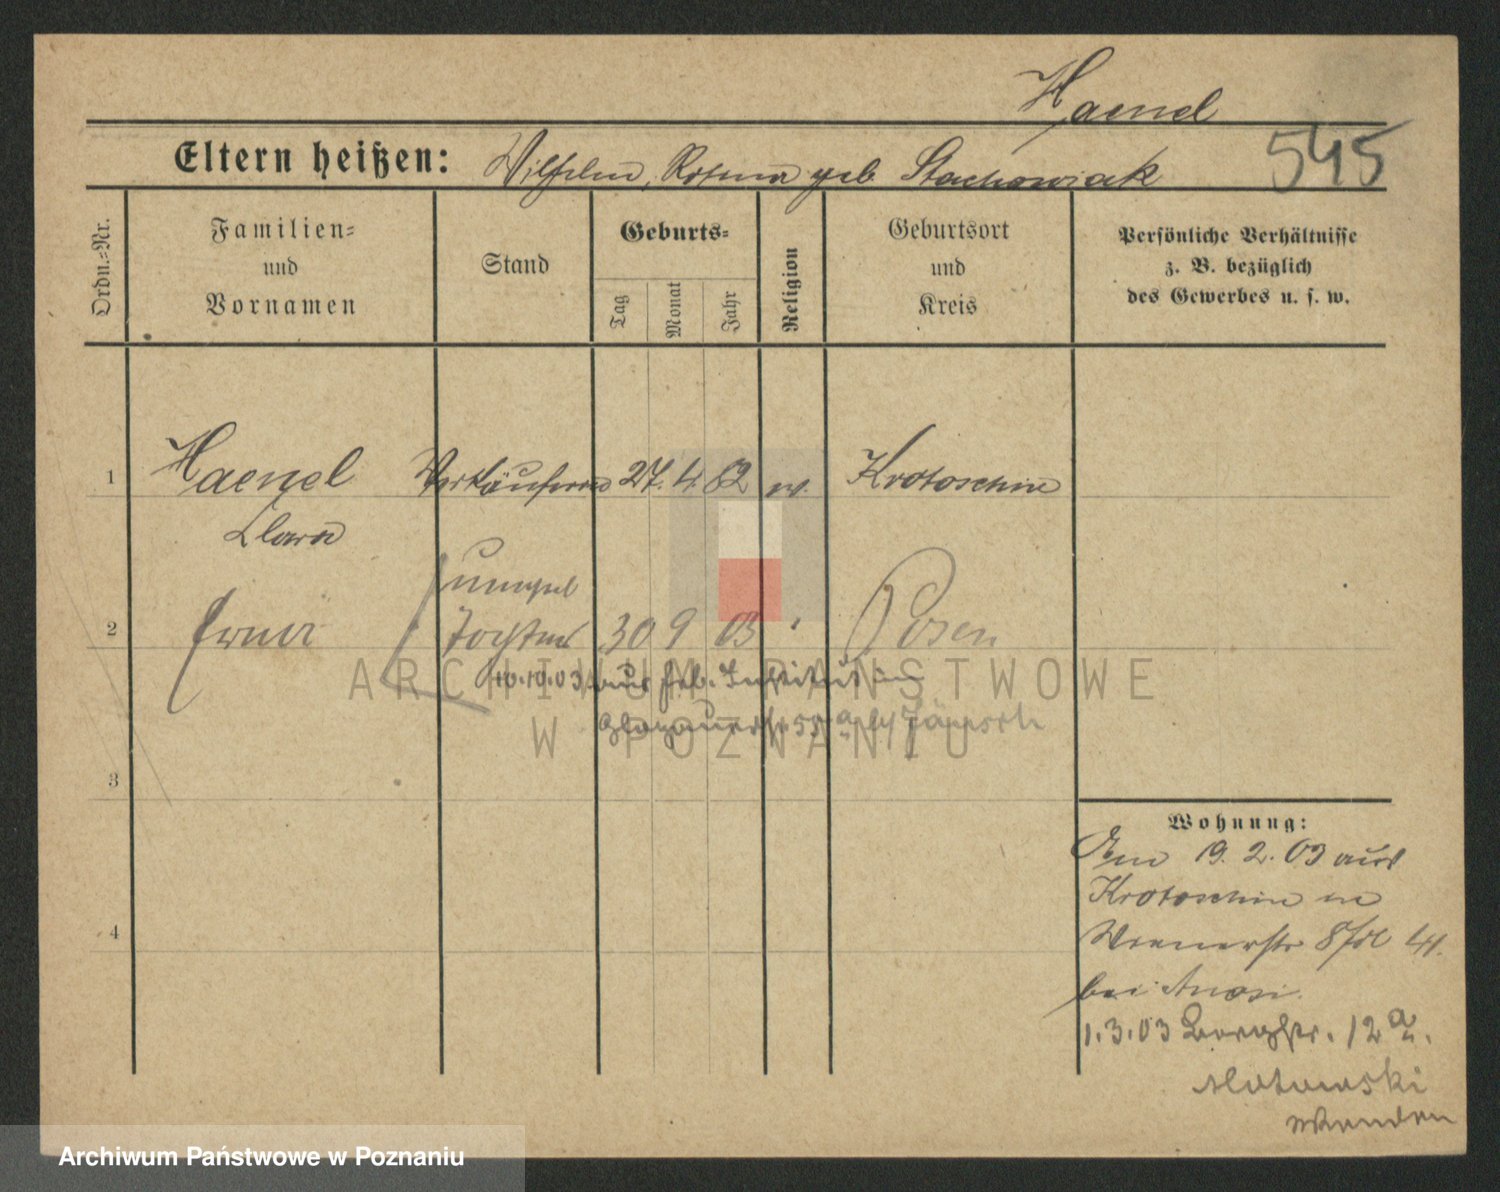 Haenel
545
Eltern heißen: Wilhelm, Rosina geb Stachowiak
Ordn.=Nr.
Familien=
und
Vornamen
Stand
Geburts=
Tag
Monat
Jahr
Religion
Geburtsort
und
Kreis
Persönliche Verhältnisse
z. B. bezüglich
des Gewerbes u. s. w.
1 Haenel Verkäuferin 27. 4. 82 Krotoschin
Clara
unehel
2 Erna Tochter 30 9 03 Posen
10.10.03 aus Heb. Institut in
Glogauerstr 55a b/
3
Wohnung:
Am 19. 2. 03 aus
Krotoschin in
Wienerstr 8
bei
1. 3. 03 Bergstr. 12 a.
4
ARCHIWUM PAŃSTWOWE
W POZNANIU
Archiwum Państwowe w Poznaniu